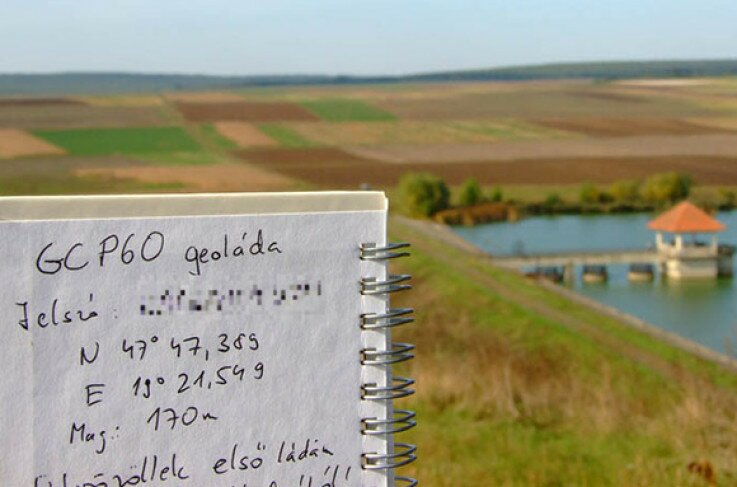 GCP60 geoláda
Jelszó:
N 47° 47,389
E 19° 21,549
Mag.: 170m
első ládán